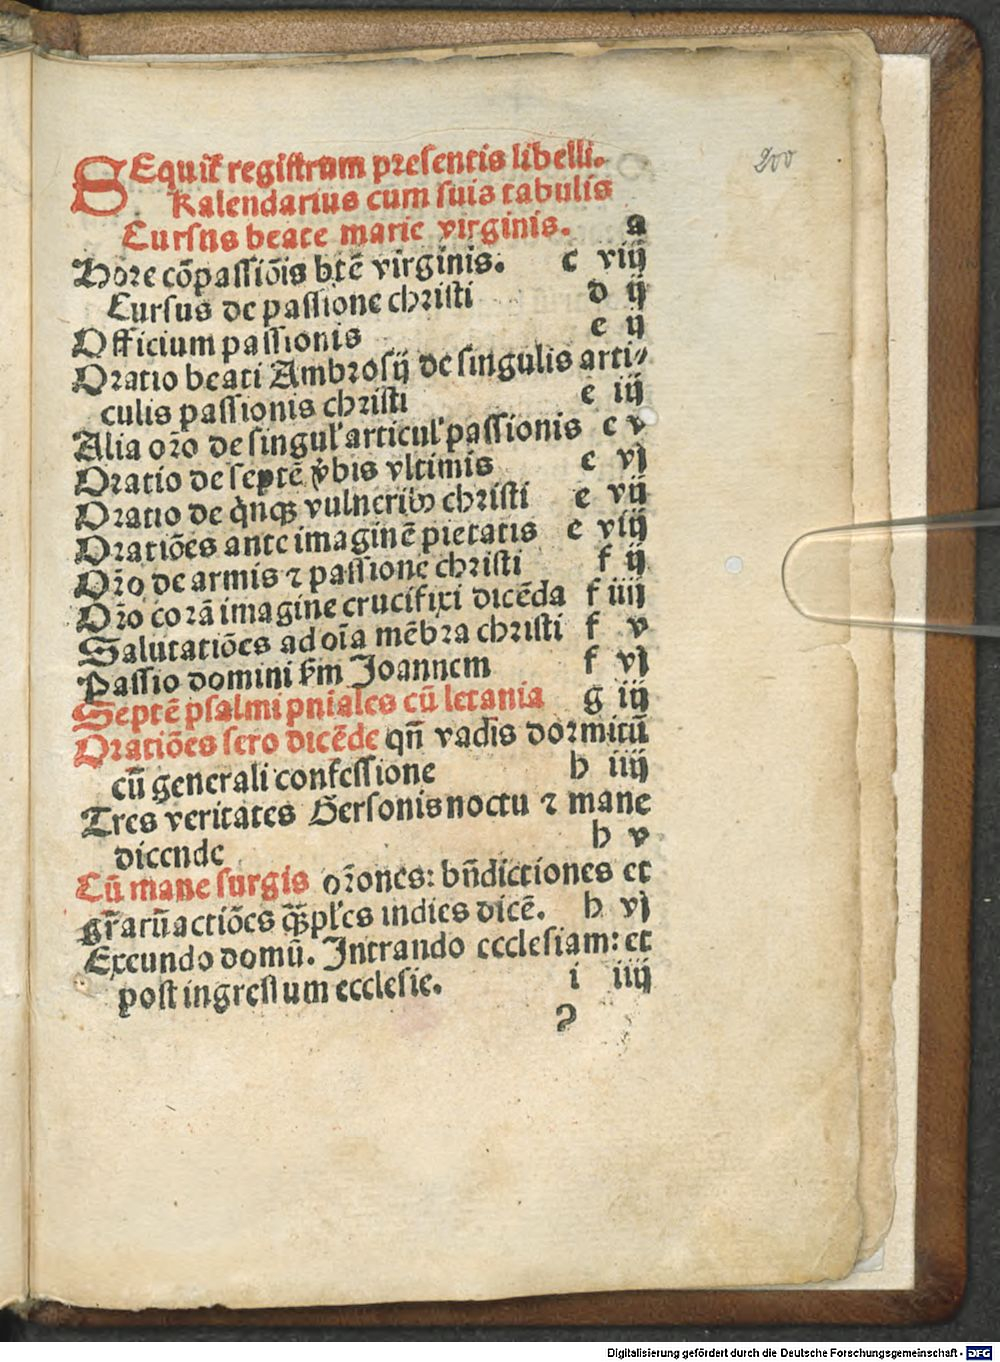 SEquit̃ registrum presentis libelli.
200
Kalendarius cum suis tabulis
Cursus beate marie virginis. a
Hore cõpassiõis btẽ virginis. c viij
Cursus de passione christi d ij
Officium passionis e ij
Oratio beati Ambrosij de singulis arti⸗
culis passionis christi e iij
Alia or̃o de singul' articul' passionis e v
Oratio de septẽ v̾bis vltimis e vj
Oratio de qͥnqꝫ vulneribꝰ christi e vij
Oratiões ante imaginẽ pietatis e viij
Or̃o de armis ⁊ passione christi f ij
Or̃o corã imagine crucifixi dicẽda f iiij
Salutatiões ad oĩa mẽbra christi f v
Passio domini ẜm Joannem f vj
Septẽ psalmi pniales cũ letania g iij
Oratiões sero dicẽde qñ vadis dormitũ
cũ generali confessione h iiij
Tres veritates Gersonis noctu ⁊ mane
dicende h v
Cũ mane surgis or̃ones: bñdictiones et
gr̃arũ actiões qͣꝫpl'es indies dicẽ. h vj
Exeundo domũ. Intrando ecclesiam: et
post ingressum ecclesie. i iiij
?
Digitalisierung gefördert durch die Deutsche Forschungsgemeinschaft - DFG